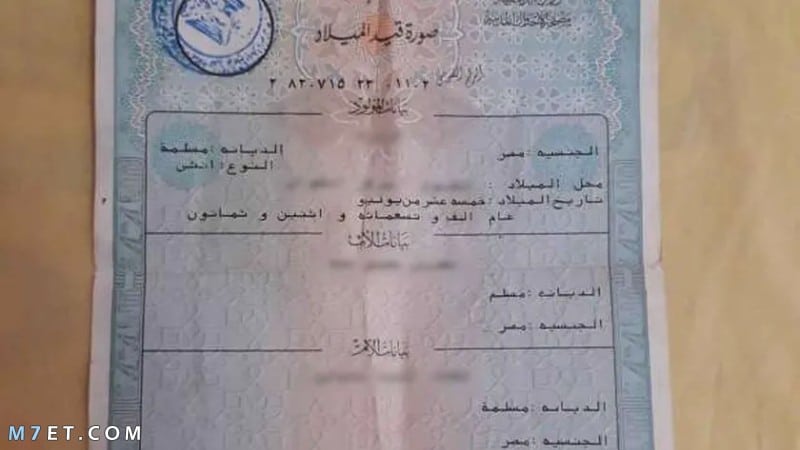 صورة قيد الميلاد
٢ ٨٢٠٧١٥ ٢٣ ٠١١٠٢
بيانات المولود
الجنسية :مصر الديانة :مسلمة
النوع: انثى
محل الميلاد :
تاريخ الميلاد :خمسه عشر من يوليو
عام الف و تسعمائه و اثنين و ثمانون
بيانات الأب
الديانه :مسلم
الجنسيه :مصر
بيانات الأم
الديانه :مسلمة
الجنسيه :مصر
M7ET.COM